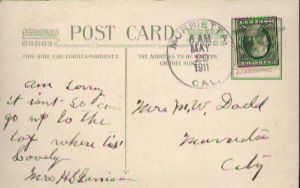 POST CARD
THIS SIDE FOR CORRESPONDENCE.
THE ADDRESS TO BE ON THIS SIDE.
MURRIETTA,
8 AM
MAY
29
1911
CAL.
am sorry
it isnt so can
go up to the
where tis
lovely
Mrs H
Mrs M.W. Dodd
Murrieta
City